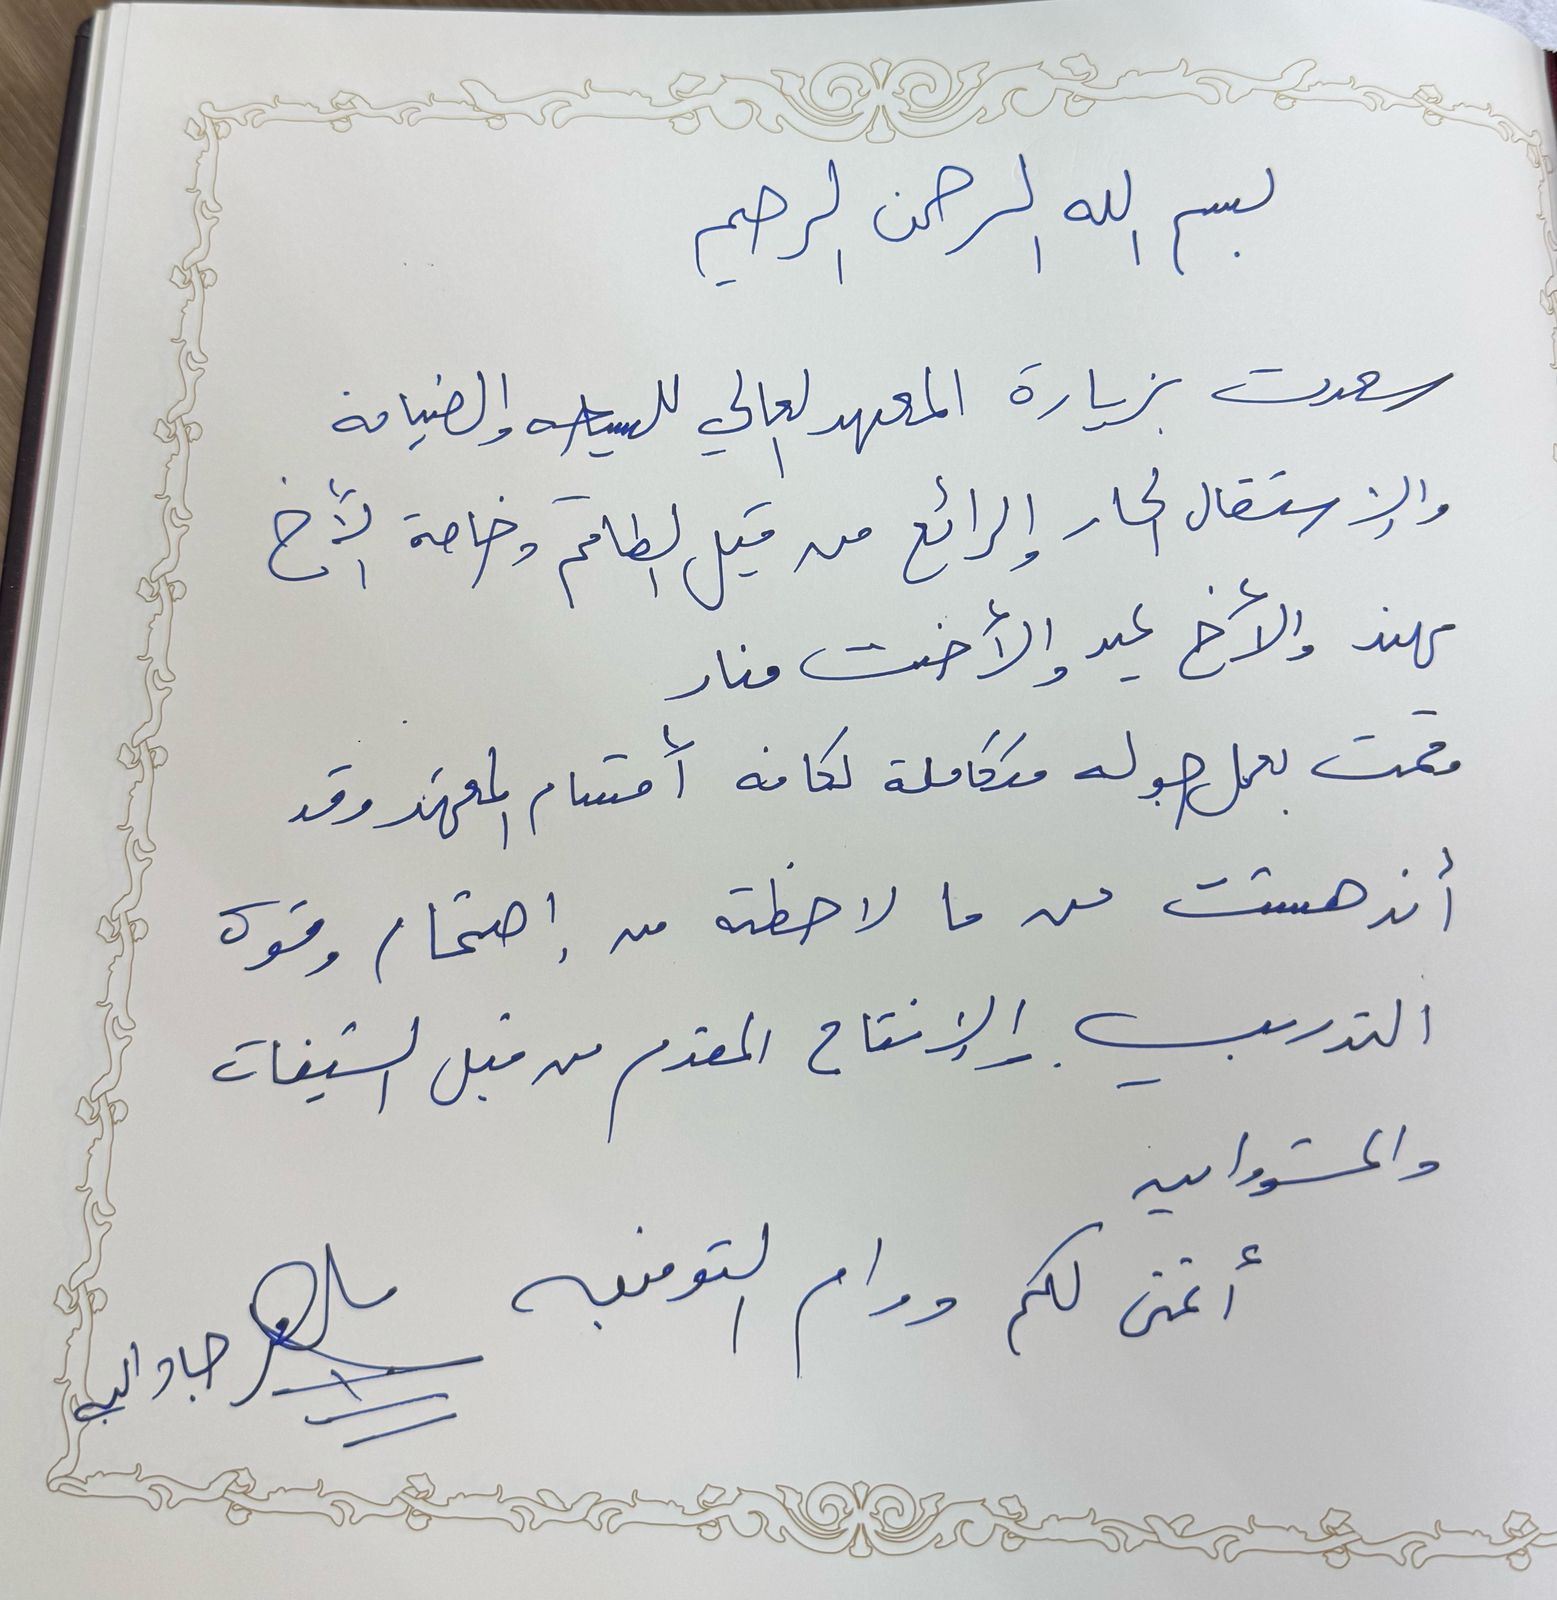 بسم الله الرحمن الرحيم
سعدت بزيارة المعهد العالي للسياحه والضيافة
والإستقبال الحار والرائع من قبل الطاقم وخاصة الأخ
مهند والأخ عيد والأخت منار
قمت بعمل جوله متكاملة لكافه أقسام المعهد وقد
أندهشت من ما لاحظته من إهتمام وقوة
التدريب والإنتاج المقدم من قبل الشيفات
والمتدربين
أتمنى لكم دوام التوفيق